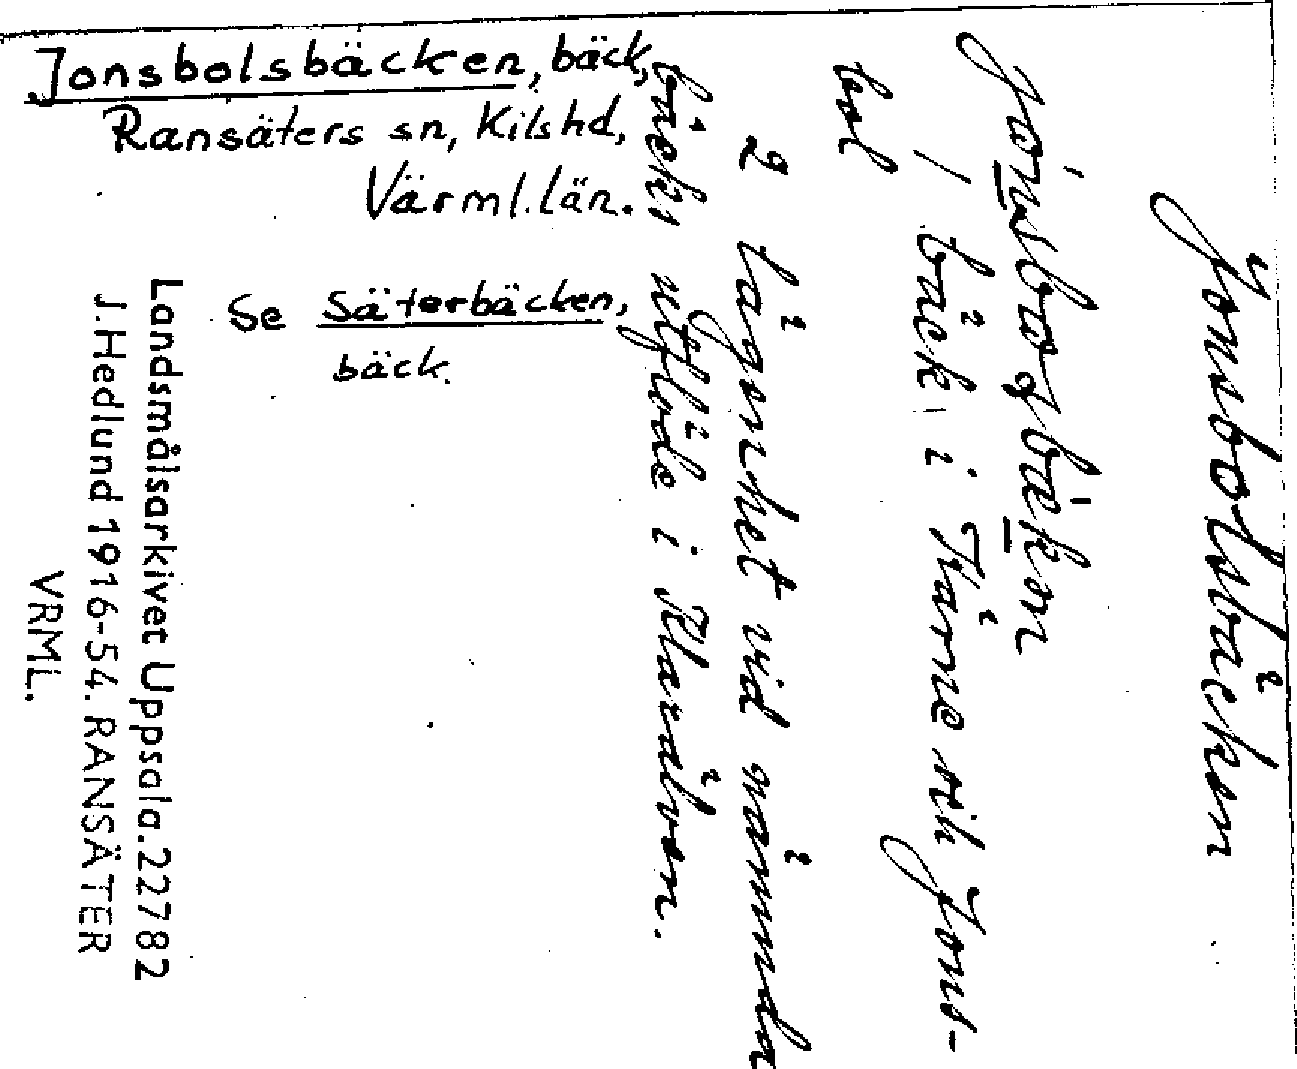 Jonsbolsbäcken, bäck,
Ransäters sn, Kilshd,
Värml. län.
Se Säterbäcken,
bäck.
Jonsbolsbäcken
1 bäck i Tärne vik Jons-
bol
2 lägenhet vid nämnda
bäcks utflöde i Klarälven.
Landsmålsarkivet Uppsala. 22782
J. Hedlund 1916-54. RANSÄTER
VRML.